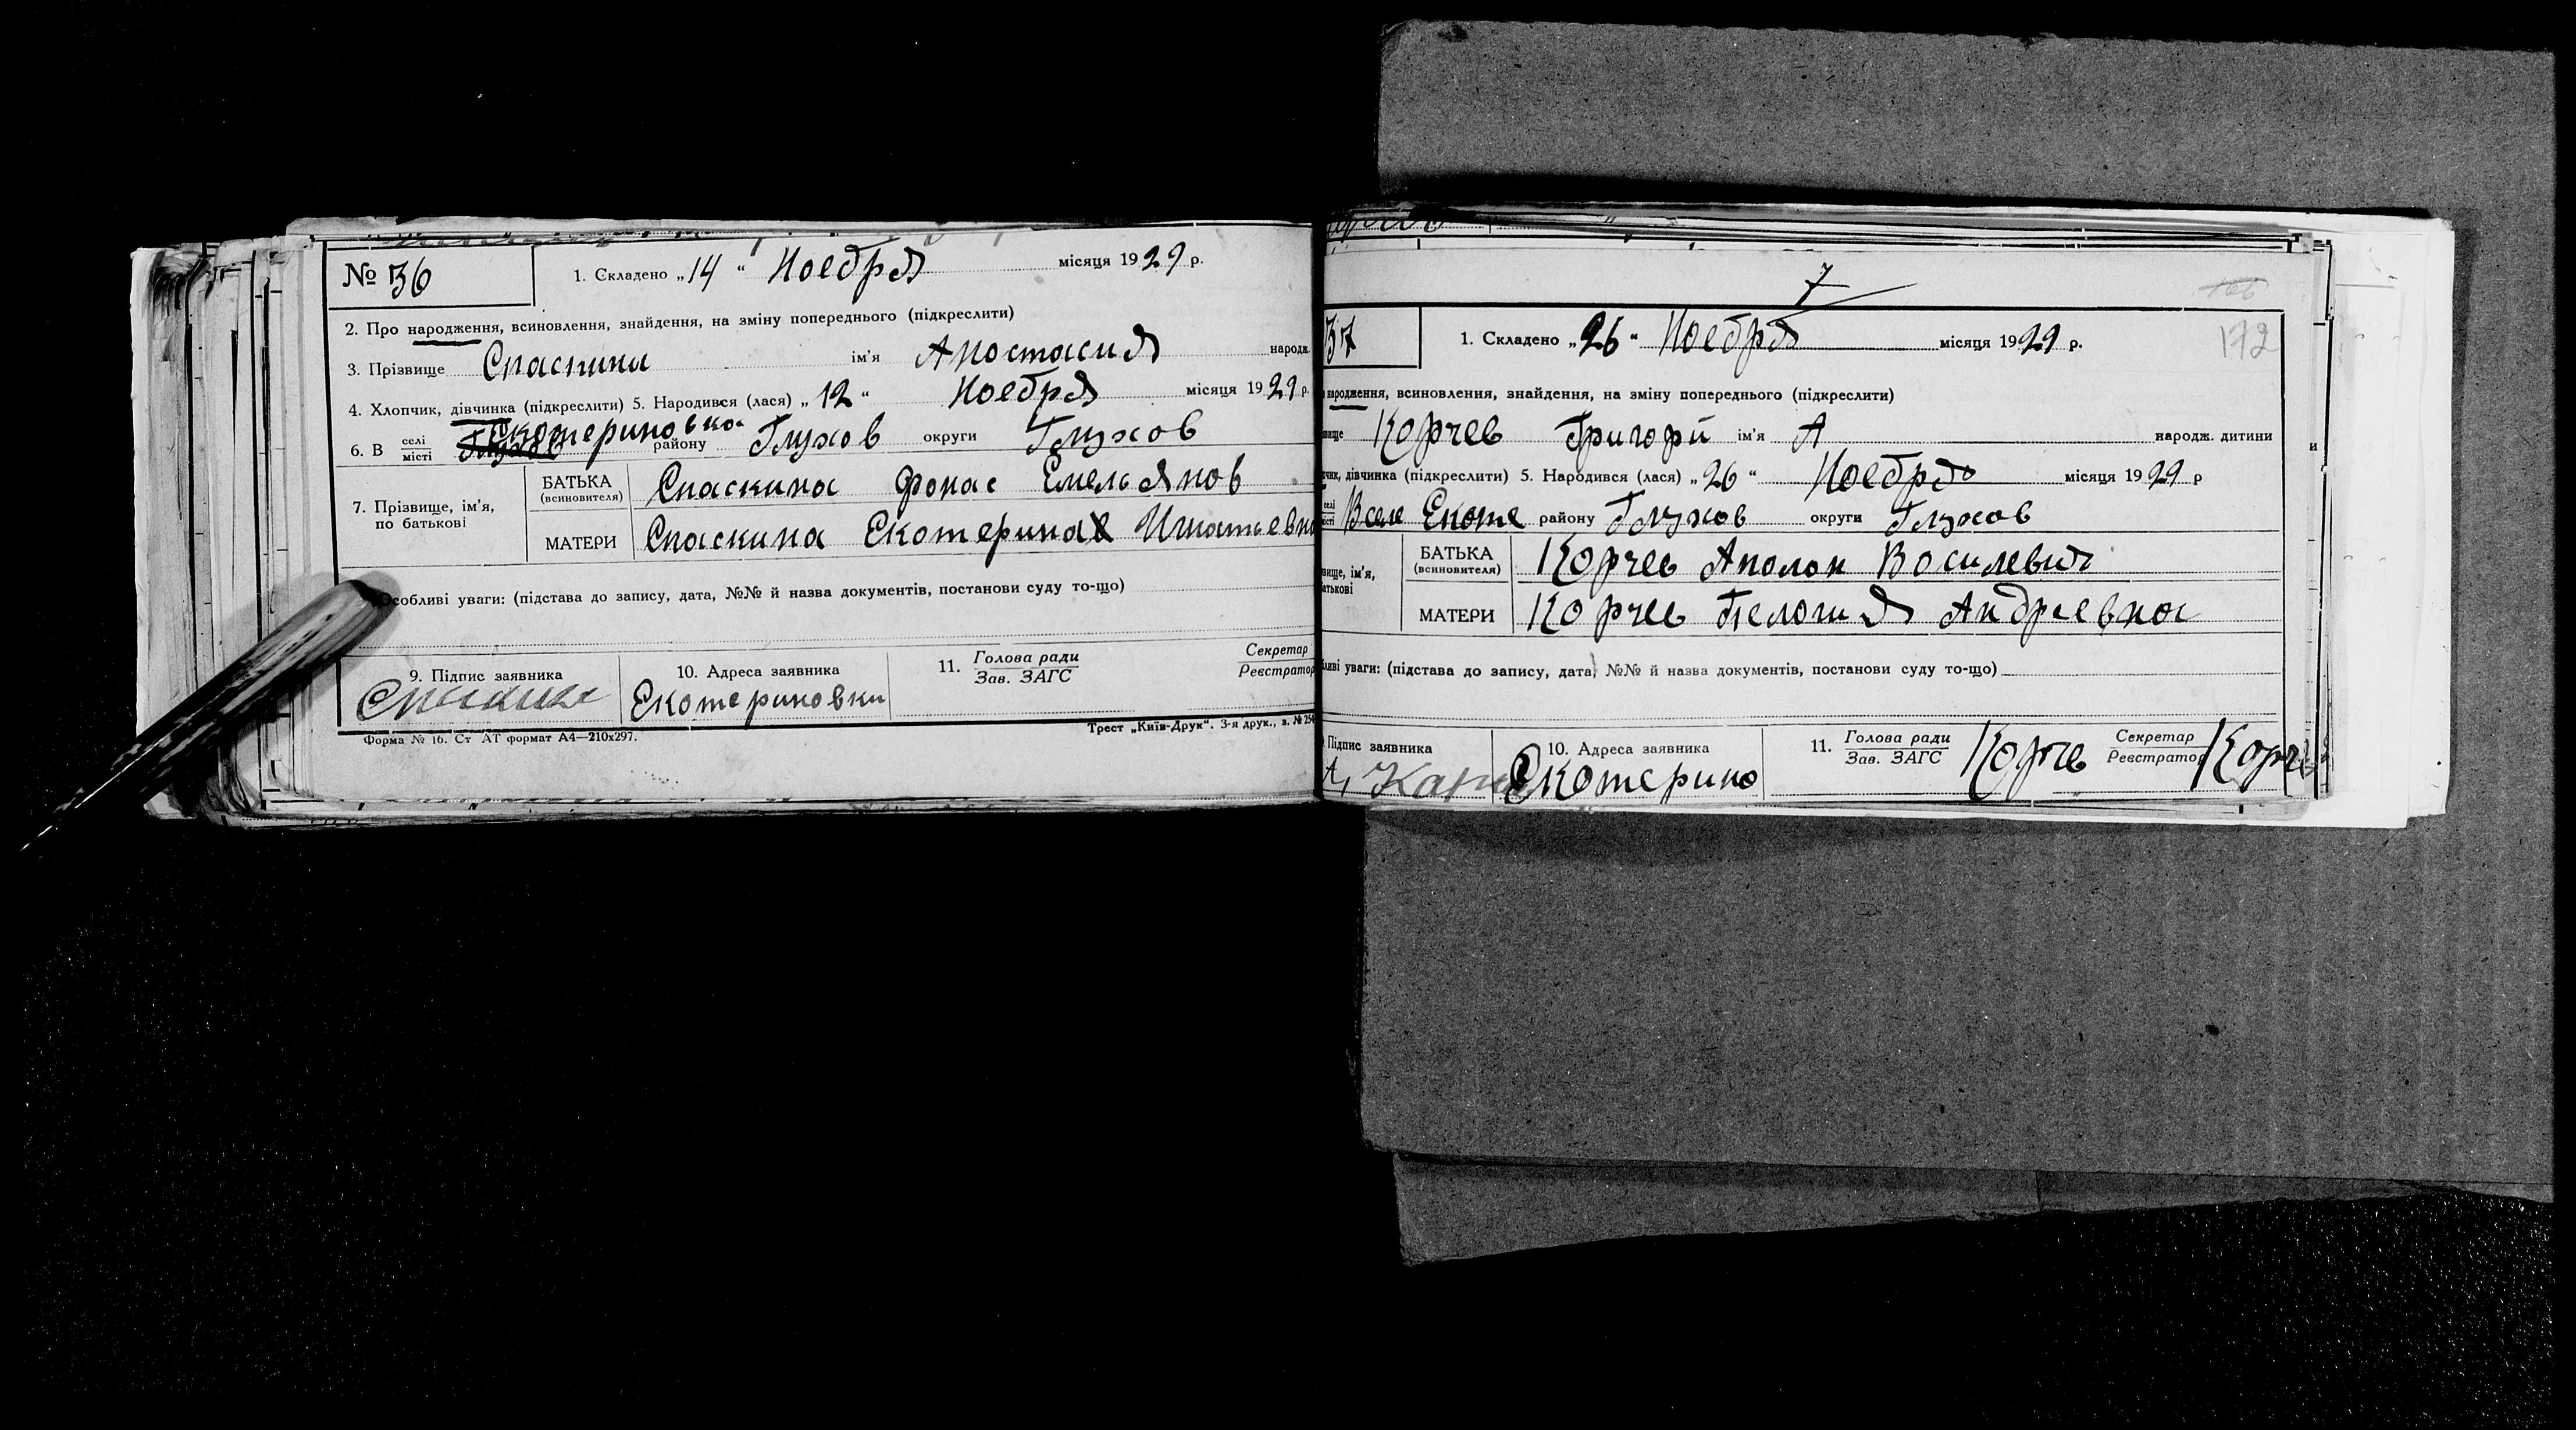 № 36
1. Складено „14“ Ноебря місяця 1929 р.
2. Про народження, всиновлення, знайдення, на зміну попереднього (підкреслити)
3. Прізвище Спаскина ім'я Аностасия народж.
4. Хлопчик, дівчинка (підкреслити) 5. Народився (лася) „12“ Ноебря місяця 1929 р.
6. В селі місті Екотериновка району Глухов округи Глухов
7. Прізвище, ім'я, по батькові
БАТЬКА (всиновителя) Спаскина Фонас Емельянов
МАТЕРИ Спаскина Екотерина Игнатьевна
Особливі уваги: (підстава до запису, дата, №№ й назва документів, постанови суду то-що)
9. Підпис заявника
10. Адреса заявника Екотериновки
11. Голова ради Зав. ЗАГС
Секретар Реєстратор
Форма № 16. Ст АТ формат А4—210х297.
Трест „Київ-Друк“. 3-я друк., з. № 254
7
172
37
1. Складено „26“ Ноебря місяця 1929 р.
народження, всиновлення, знайдення, на зміну попереднього (підкреслити)
Корчев Григорй ім'я А народж. дитини
дівчинка (підкреслити) 5. Народився (лася) „26“ Ноебря місяця 1929 р
В селе Екоте району Глухов округи Глухов
ім'я,
БАТЬКА (всиновителя) Корчев Аполон Восилевич
МАТЕРИ Корчев Пелогия Андреевна
уваги: (підстава до запису, дата, №№ й назва документів, постанови суду то-що)
Підпис заявника
10. Адреса заявника Екотерино
11. Голова ради Зав. ЗАГС Корчев
Секретар Реєстратор